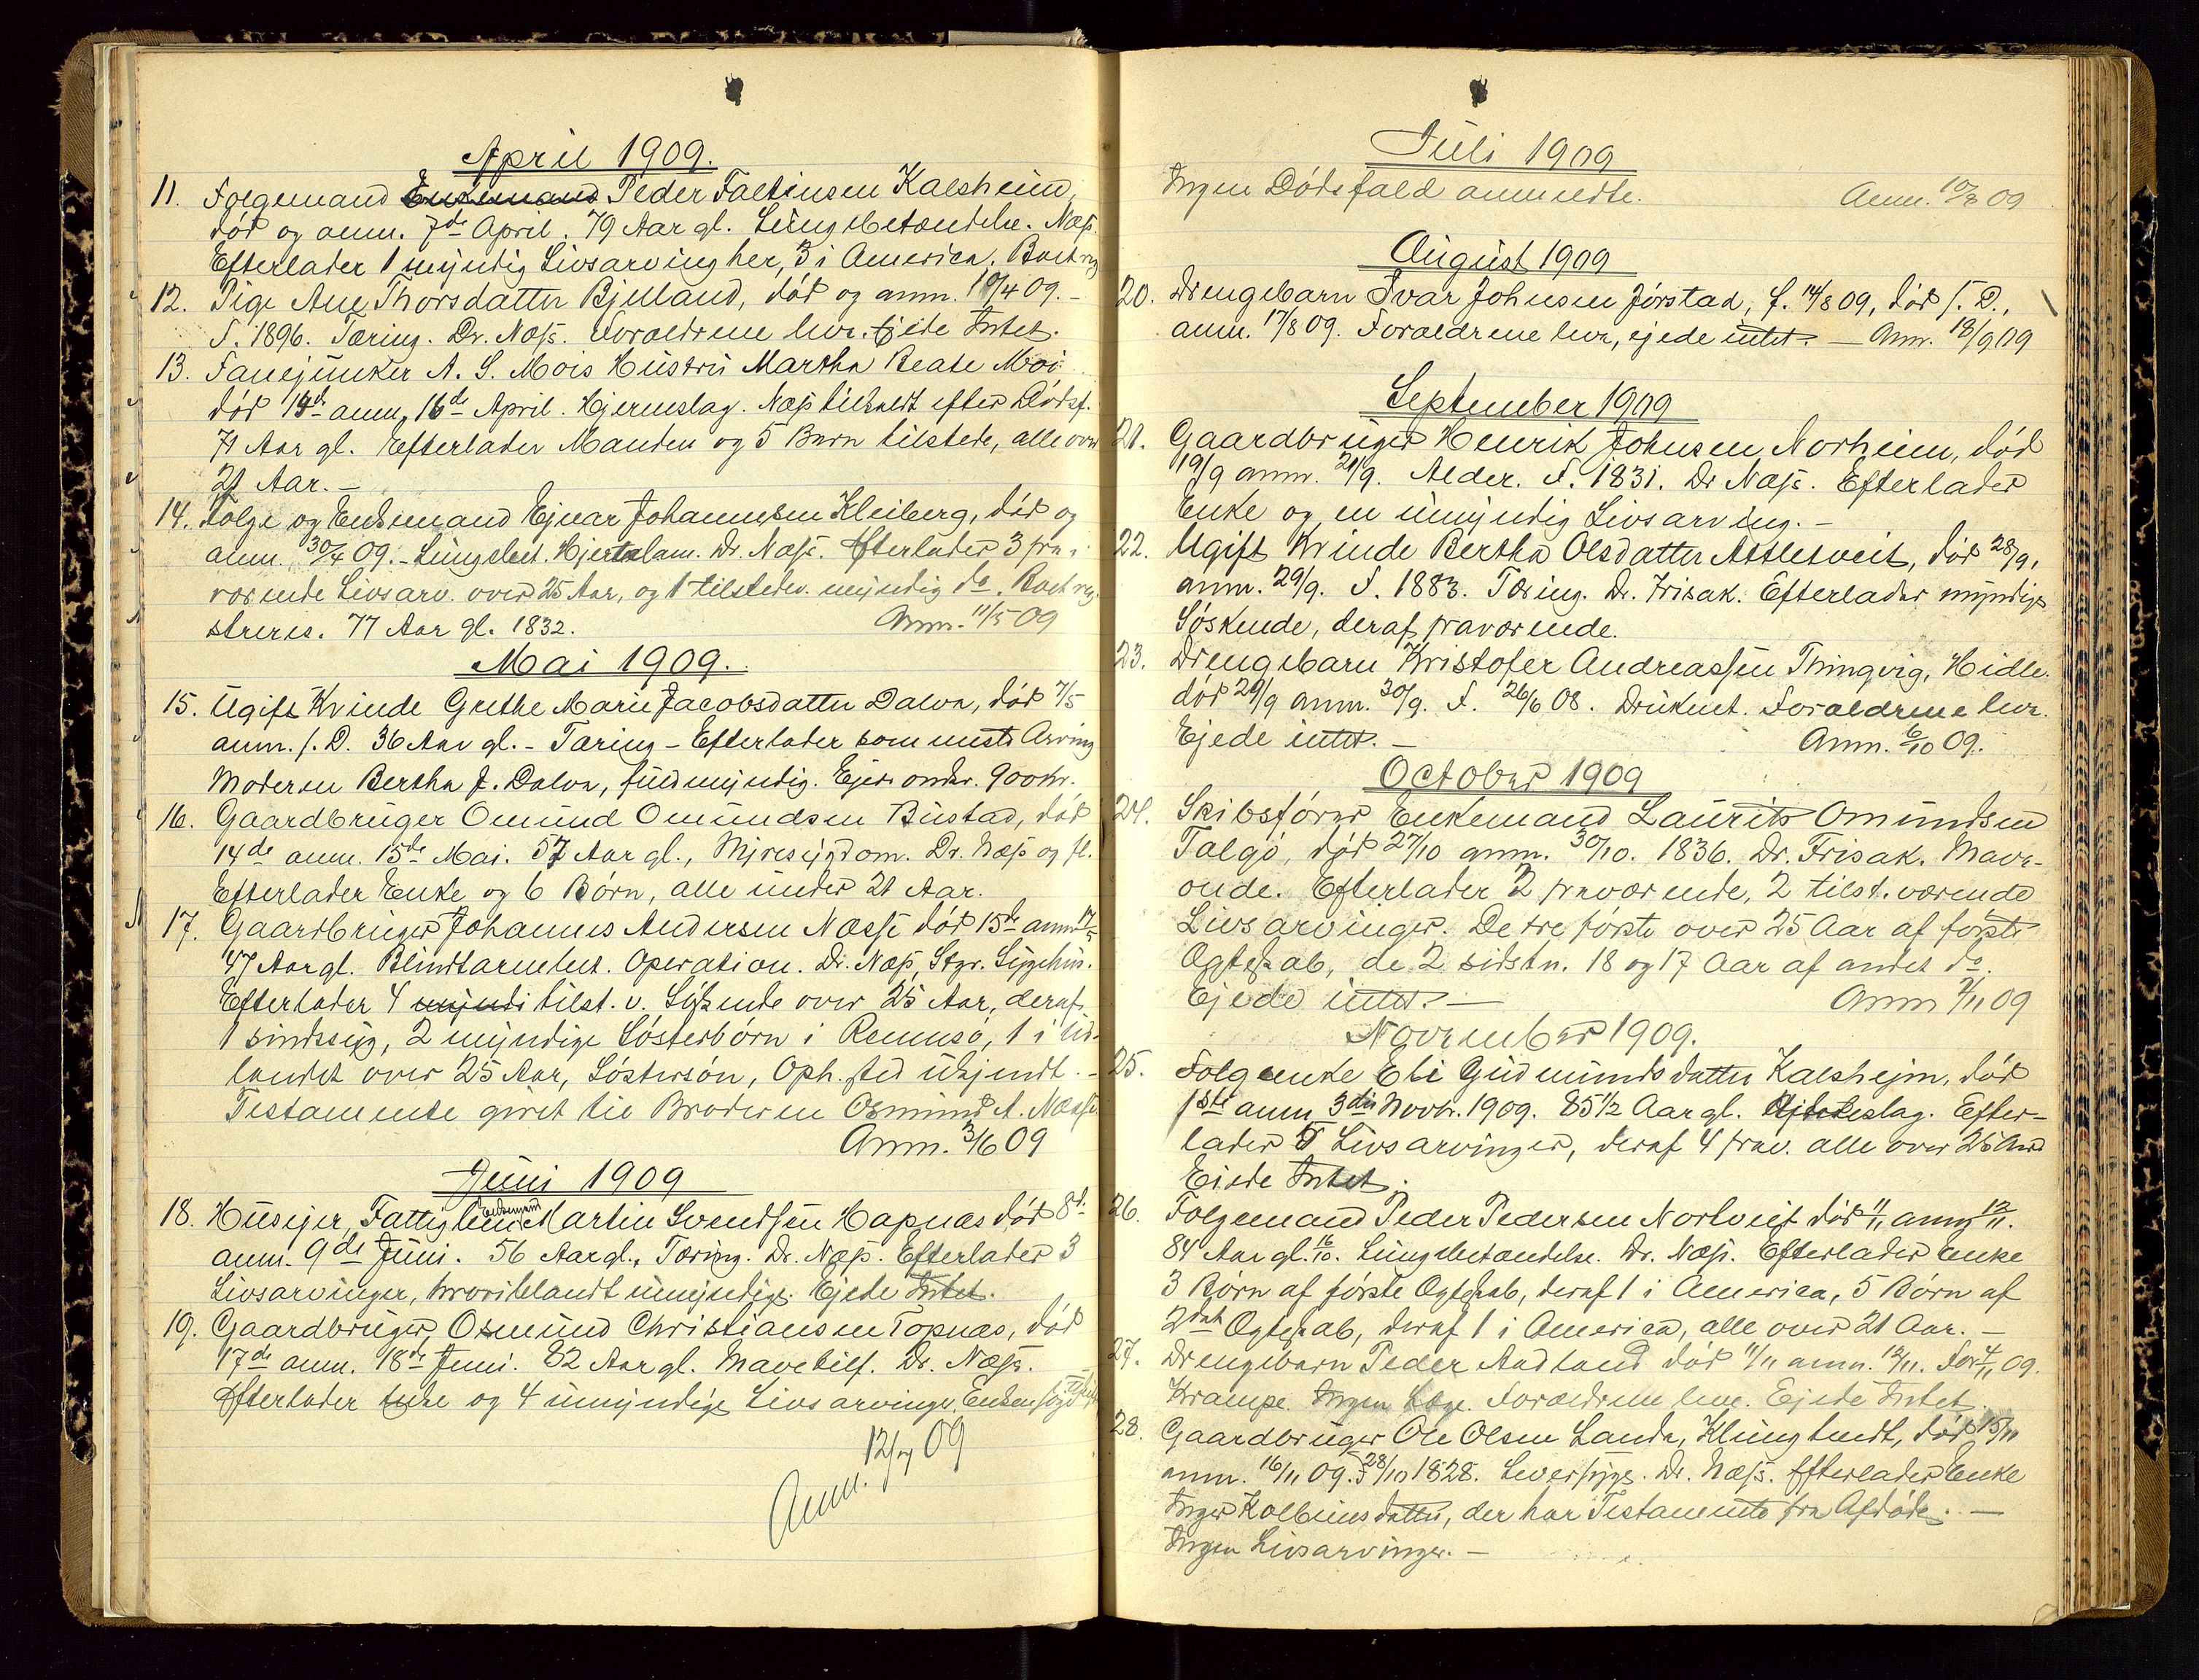 April 1909.
11. Folgemand Enkemand Peder Faltinsen Kalsheim,
død og anm. 7de April. 79 Aar gl. Lungebetændelse. Næss.
Efterlader 1 myndig Livsarving her, 3 i America. Boet reg
12. Pige Ane Thorsdatter Bjelland, død og anm. 10/4 09.-
F. 1896. Tæring. Dr. Næss. Forældrene lever. Ejede Intet.
13. Fanejunker A. S. Mois Hustru Martha Beate Moi
død 14de anm. 16de April. Hjerneslag. Næss tilkaldt efter Dødsf.
71 Aar gl. Efterlader Manden og 5 Børn tilstede, alle over
21 Aar. -
14. Følge og Enkemand Ejnar Johannesen Kleiberg, død og
anm. 30/4 09. - Lungebet. Hjertelam. Dr. Næss. Efterlader 3 fra-
værende Livsarv. over 25 Aar, og 1 tilstedev. myndig do. Boet reg.
streres. 77 Aar gl. 1832. Anm. 11/5 09
Mai 1909.
15. Ugift Kvinde Grethe Marie Jacobsdatter Dalva, død 7/5
anm. s. D. 36 Aar gl. - Tæring - Efterlader som næste Arving
Moderen Bertha J. Dalva, fuldmyndig. Ejer omkr. 900 Kr.
16. Gaardbruger Omund Omundsen Bustad, død
14de anm. 15de Mai. 57 Aar gl., Nyresygdom. Dr. Næss og fl.
Efterlader Enke og 6 Børn, alle under 21 Aar.
17. Gaardbruger Johannes Andersen Næsse død 15de anm. 17/5
47 Aar gl. Blindtarmbet. Operation. Dr. Næss, Stgr. Sygehus.
Efterlader 4 myndi tilst. v. Søskende over 25 Aar, deraf
1 sindssyg, 2 myndige Søsterbørn i Rennesø, 1 i Ud-
landet over 25 Aar, Søstersøn, Oph. sted ukjendt. -
Testamente givet til Broderen Osmund A. Næsse
Anm. 3/6 09
Juni 1909
18. Husejer, Fattiglem Enkemand Martin Svendsen Hapnæs død 8de
anm. 9de Juni. 56 Aar gl., Tæring. Dr. Næss. Efterlader 3
Livsarvinger, hvoriblandt umyndige. Ejede Intet.
19. Gaardbruger, Osmund Christiansen Topnæs, død
17de anm. 18de Juni. 82 Aar gl. Mavetilf. Dr. Næss.
Efterlader Enke og 4 umyndige Livsarvinger. Enken
Anm. 12/7 09
Juli 1909
Ingen Dødsfald anmeldte. Anm. 10/8 09
August 1909
20. Drengebarn Ivar Johnsen Jørstad, f. 14/8 09, død s. D.,
anm. 17/8 09. Forældrene lever, ejede intet. - Anm. 18/9 09
September 1909
21. Gaardbruger Henrik Johnsen Norheim, død
19/9 anm. 21/9. Alder. F. 1831. Dr Næss. Efterlader
Enke og en umyndig Livsarving. -
22. Ugift Kvinde Bertha Olsdatter Atletveit, død 28/9,
anm. 29/9. F. 1883. Tæring. Dr. Frisak. Efterlader myndige
Søskende, deraf fraværende.
23. Drengebarn Kristofer Andreassen Thingvig, Hidle.
død 29/9 anm. 30/9. F. 26/6 08. Druknet. Forældrene lever.
Ejede intet. - Anm. 6/10 09.
October 1909
24. Skibsfører Enkemand Laurits Omundsen
Talgø, død 27/10 anm. 30/10. 1836. Dr. Frisak. Mave-
onde. Efterlader 2 fraværende, 2 tilst. værende
Livsarvinger. De tre første over 25 Aar af første
Ægteskab, de 2 sidstn. 18 og 17 Aar af andet do.
Ejede intet. - Anm 2/11 09
November 1909.
25. Folgeenke Eli Gudmundsdatter Kalshejm, død
1ste anm. 3die Novbr. 1909. 85 1/2 Aar gl. Efter-
lader 5 Livsarvinger, deraf 4 frav. alle over 25 Aar
Eiede Intet.
26. Folgemand Peder Pedersen Nortveit død 11/11 anm. 12/11.
84 Aar gl. 16/10. Lungebetændelse. Dr. Næss. Efterlader Enke
3 Børn af første Ægteskab, deraf 1 i America, 5 Børn af
2det Ægteskab, deraf 1 i America, alle over 21 Aar. -
27. Drengebarn Peder Aadland død 11/11 anm. 12/11. Fød 4/11 09.
Krampe. Ingen Læge. Forældrene leve. Ejede Intet.
28. Gaardbruger Ole Olsen Landa, Klungtvedt, død 15/11
anm. 16/11 09. F 28/10 1828. Leversyge. Dr. Næss. Efterlader Enke
Inger Kolbeinsdatter, der har Testamente fra Afdøde. -
Ingen Livsarvinger. -